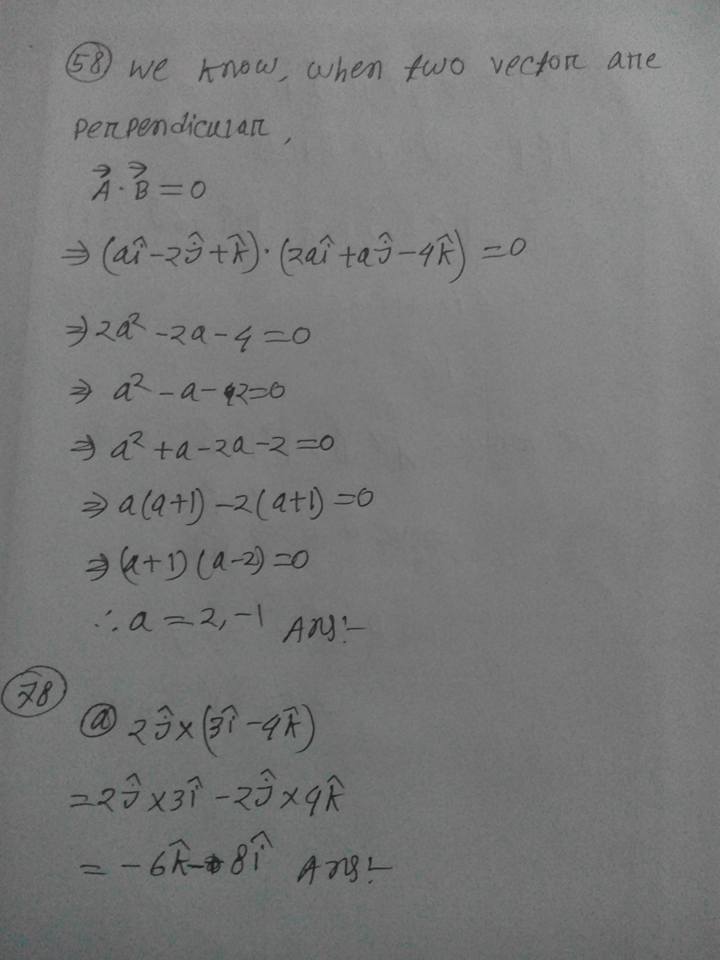 58 we know, when two vector are
perpendicular,
A⃗ · B⃗ = 0
⇒ (aî - 2ĵ + k̂) · (2aî + aĵ - 4k̂) = 0
⇒ 2a² - 2a - 4 = 0
⇒ a² - a - 2 = 0
⇒ a² + a - 2a - 2 = 0
⇒ a(a+1) - 2(a+1) = 0
⇒ (a+1) (a-2) = 0
∴ a = 2, -1 Ans:-
78
a 2ĵ × (3î - 4k̂)
= 2ĵ × 3î - 2ĵ × 4k̂
= - 6k̂ - 8î Ans:-